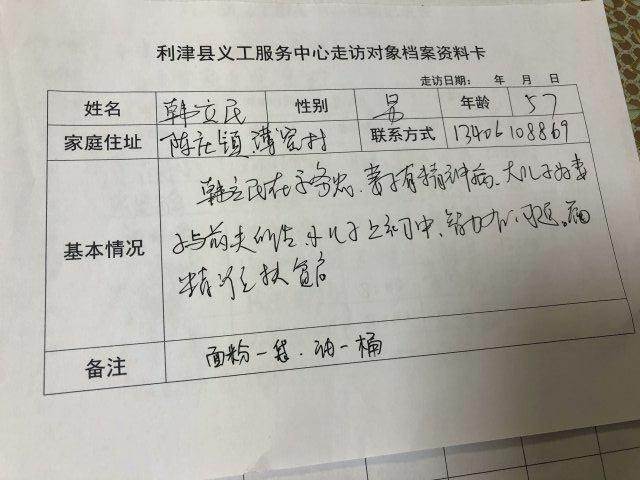 利津县义工服务中心走访对象档案资料卡
走访日期： 年 月 日
姓名 韩立民 性别 男 年龄 57
家庭住址 陈庄镇薄家村 联系方式 13406108869
韩立民在家务农、妻子有精神病、大儿子为妻
基本情况 子与前夫所生、小儿子上初中、智力有问题。
精准扶贫户
备注 面粉一袋、油一桶